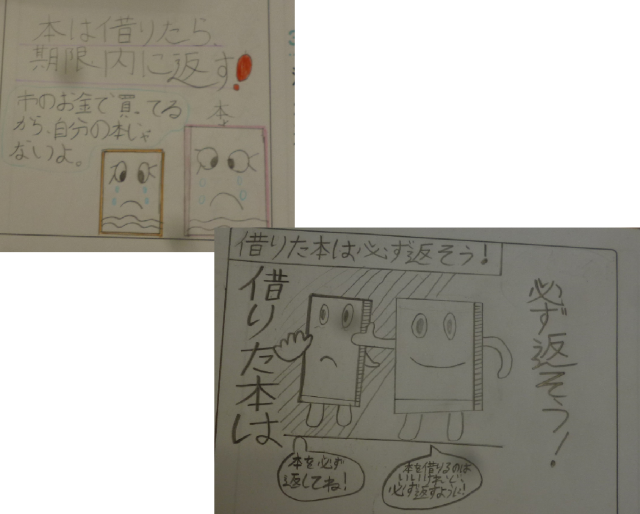 本は借りたら、
期限内に返す!
本
キのお金で買ってる
から、自分の本じゃ
ないよ。
借りた本は必ず返そう!
借りた本は
必ず返そう!
本を必ず
返してね!
本を借りるのは
いいけれど、
必ず返すように!